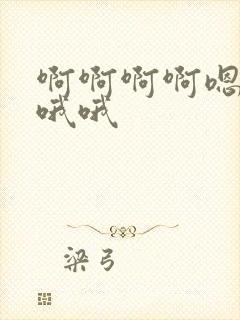 啊啊啊啊嗯
哦哦
梁弓